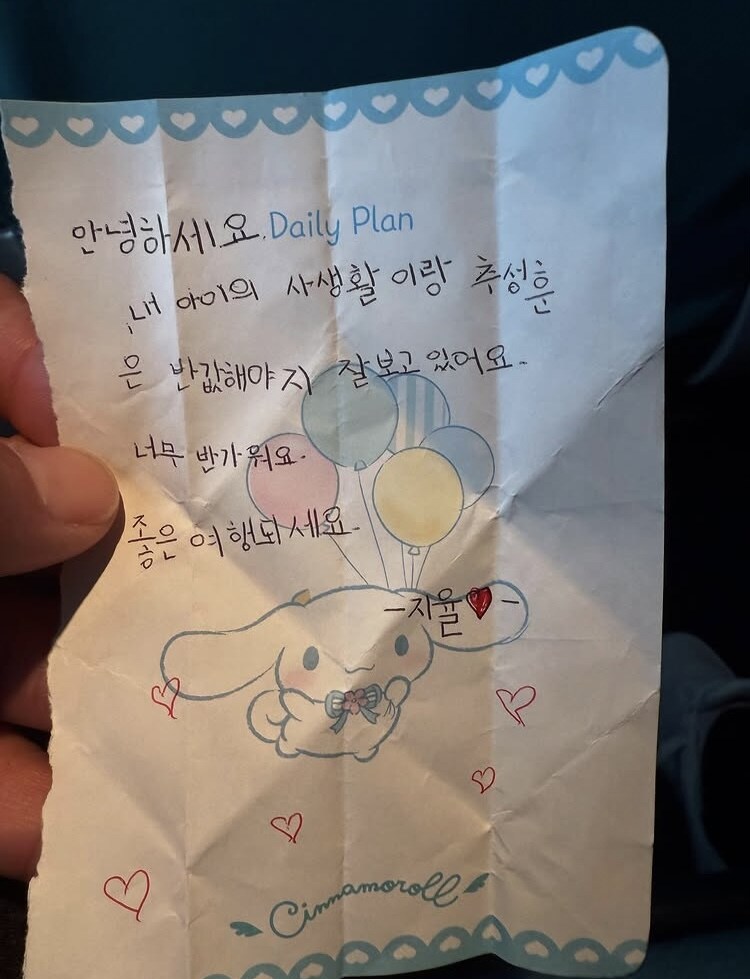 안녕하세요. Daily Plan
내 아이의 사생활 이랑 추성훈
은 반값해야지 잘보고 있어요.
너무 반가워요.
좋은 여행되세요.
-지율♥-
Cinnamoroll